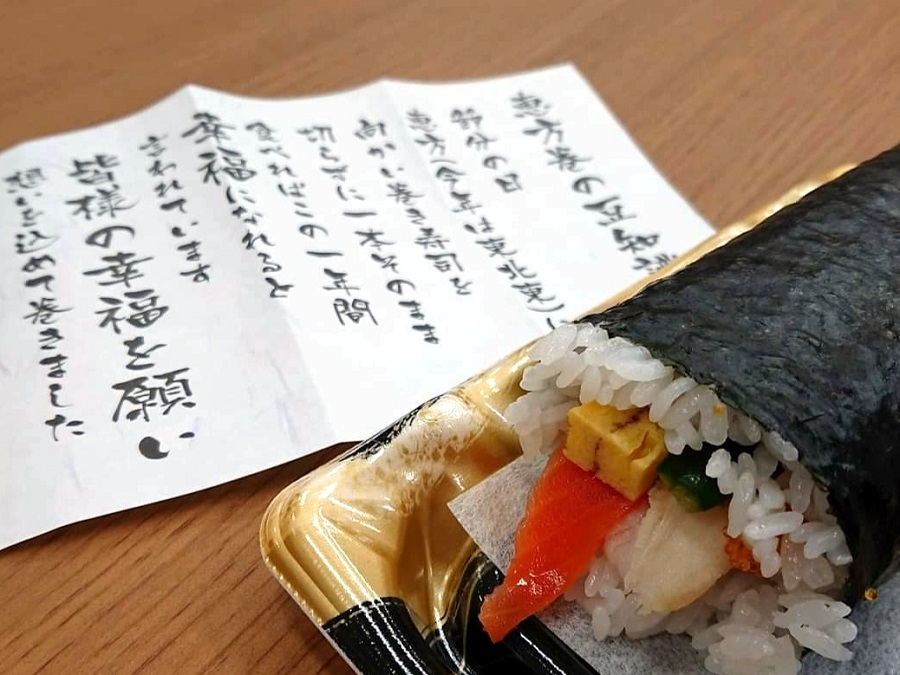 恵方巻の豆知識
節分の日
恵方(今年は東北東)に
向かい巻き寿司を
切らずに一本そのまま
食べればこの一年間
幸福になれると
言われています
皆様の幸福を願い
想いを込めて巻きました